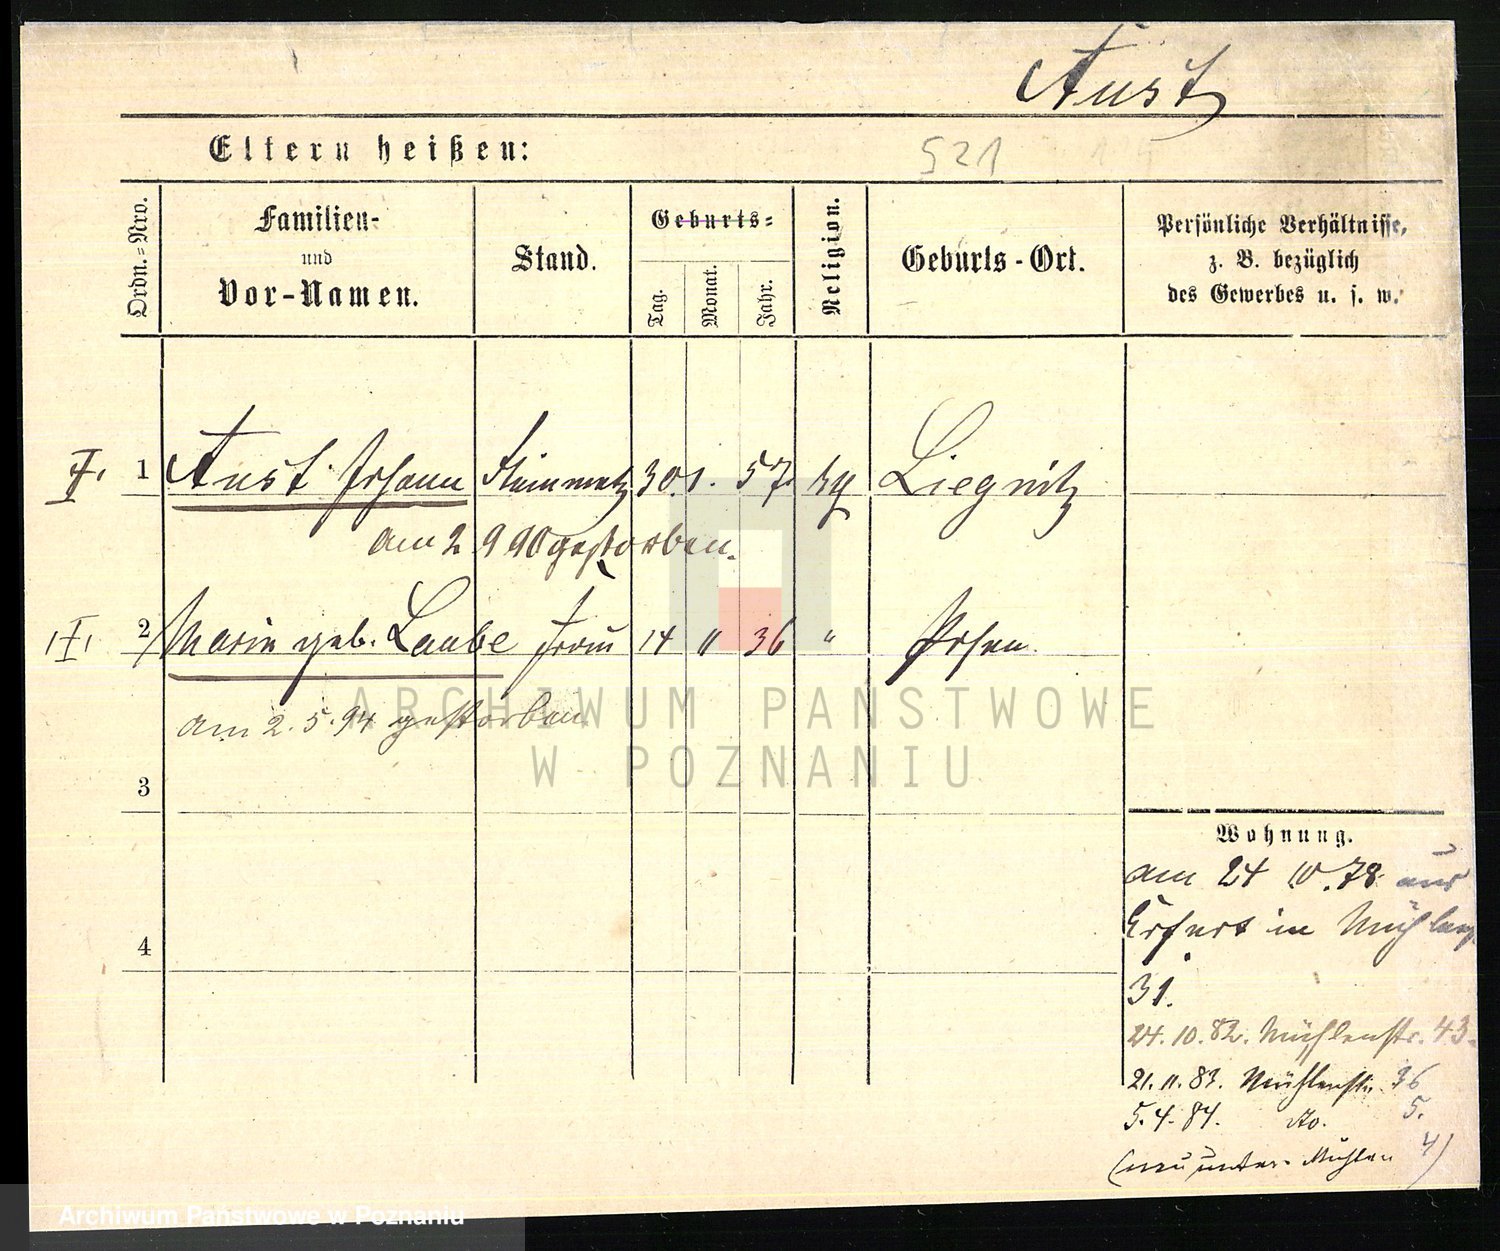 Aust
Eltern heißen:
521
Ordn.=Nro.
Familien-
und
Vor-Namen.
Stand.
Geburts=
Tag.
Monat.
Jahr.
Religion.
Geburts-Ort.
Persönliche Verhältnisse,
z. B. bezüglich
des Gewerbes u. s. w.
1 Aust Johann Steinmetz 30. 1. 57. Liegnitz
am 2 9 90 gestorben.
2 Marie geb. Laube Frau 14 " 36 " Posen.
am 2. 5. 94 gestorben
ARCHIWUM PAŃSTWOWE
W POZNANIU
3
4
Wohnung.
am 24 10. 78. aus
Erfurt in
31.
24. 10. 82. Mühlenstr. 43.
21. 11. 83. Mühlenstr. 36
5. 4. 84. do. 5.
Mühlen 4)
Archiwum Państwowe w Poznaniu